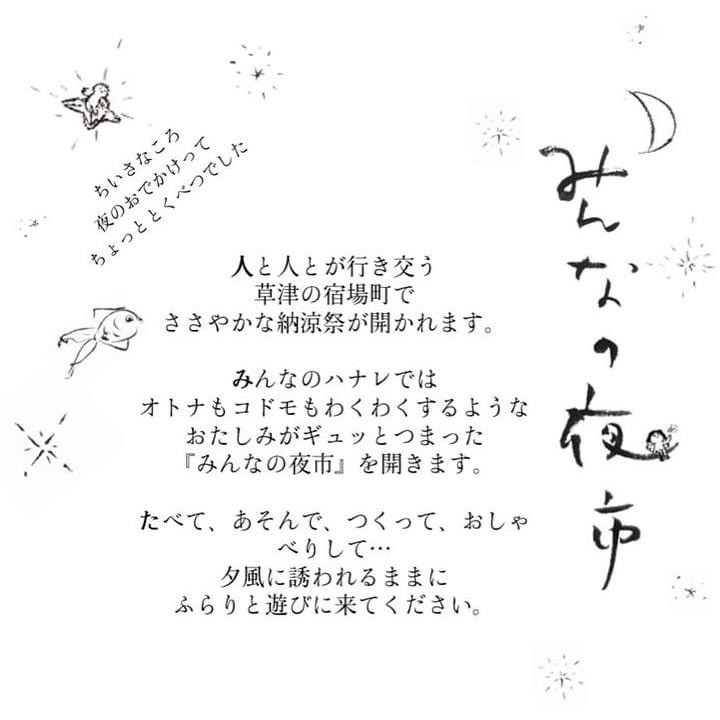 みんなの夜市
ちいさなころ
夜のおでかけって
ちょっととくべつでした
人と人とが行き交う
草津の宿場町で
ささやかな納涼祭が開かれます。
みんなのハナレでは
オトナもコドモもわくわくするような
おたしみがギュッとつまった
『みんなの夜市』を開きます。
たべて、あそんで、つくって、おしゃ
べりして…
夕風に誘われるままに
ふらりと遊びに来てください。